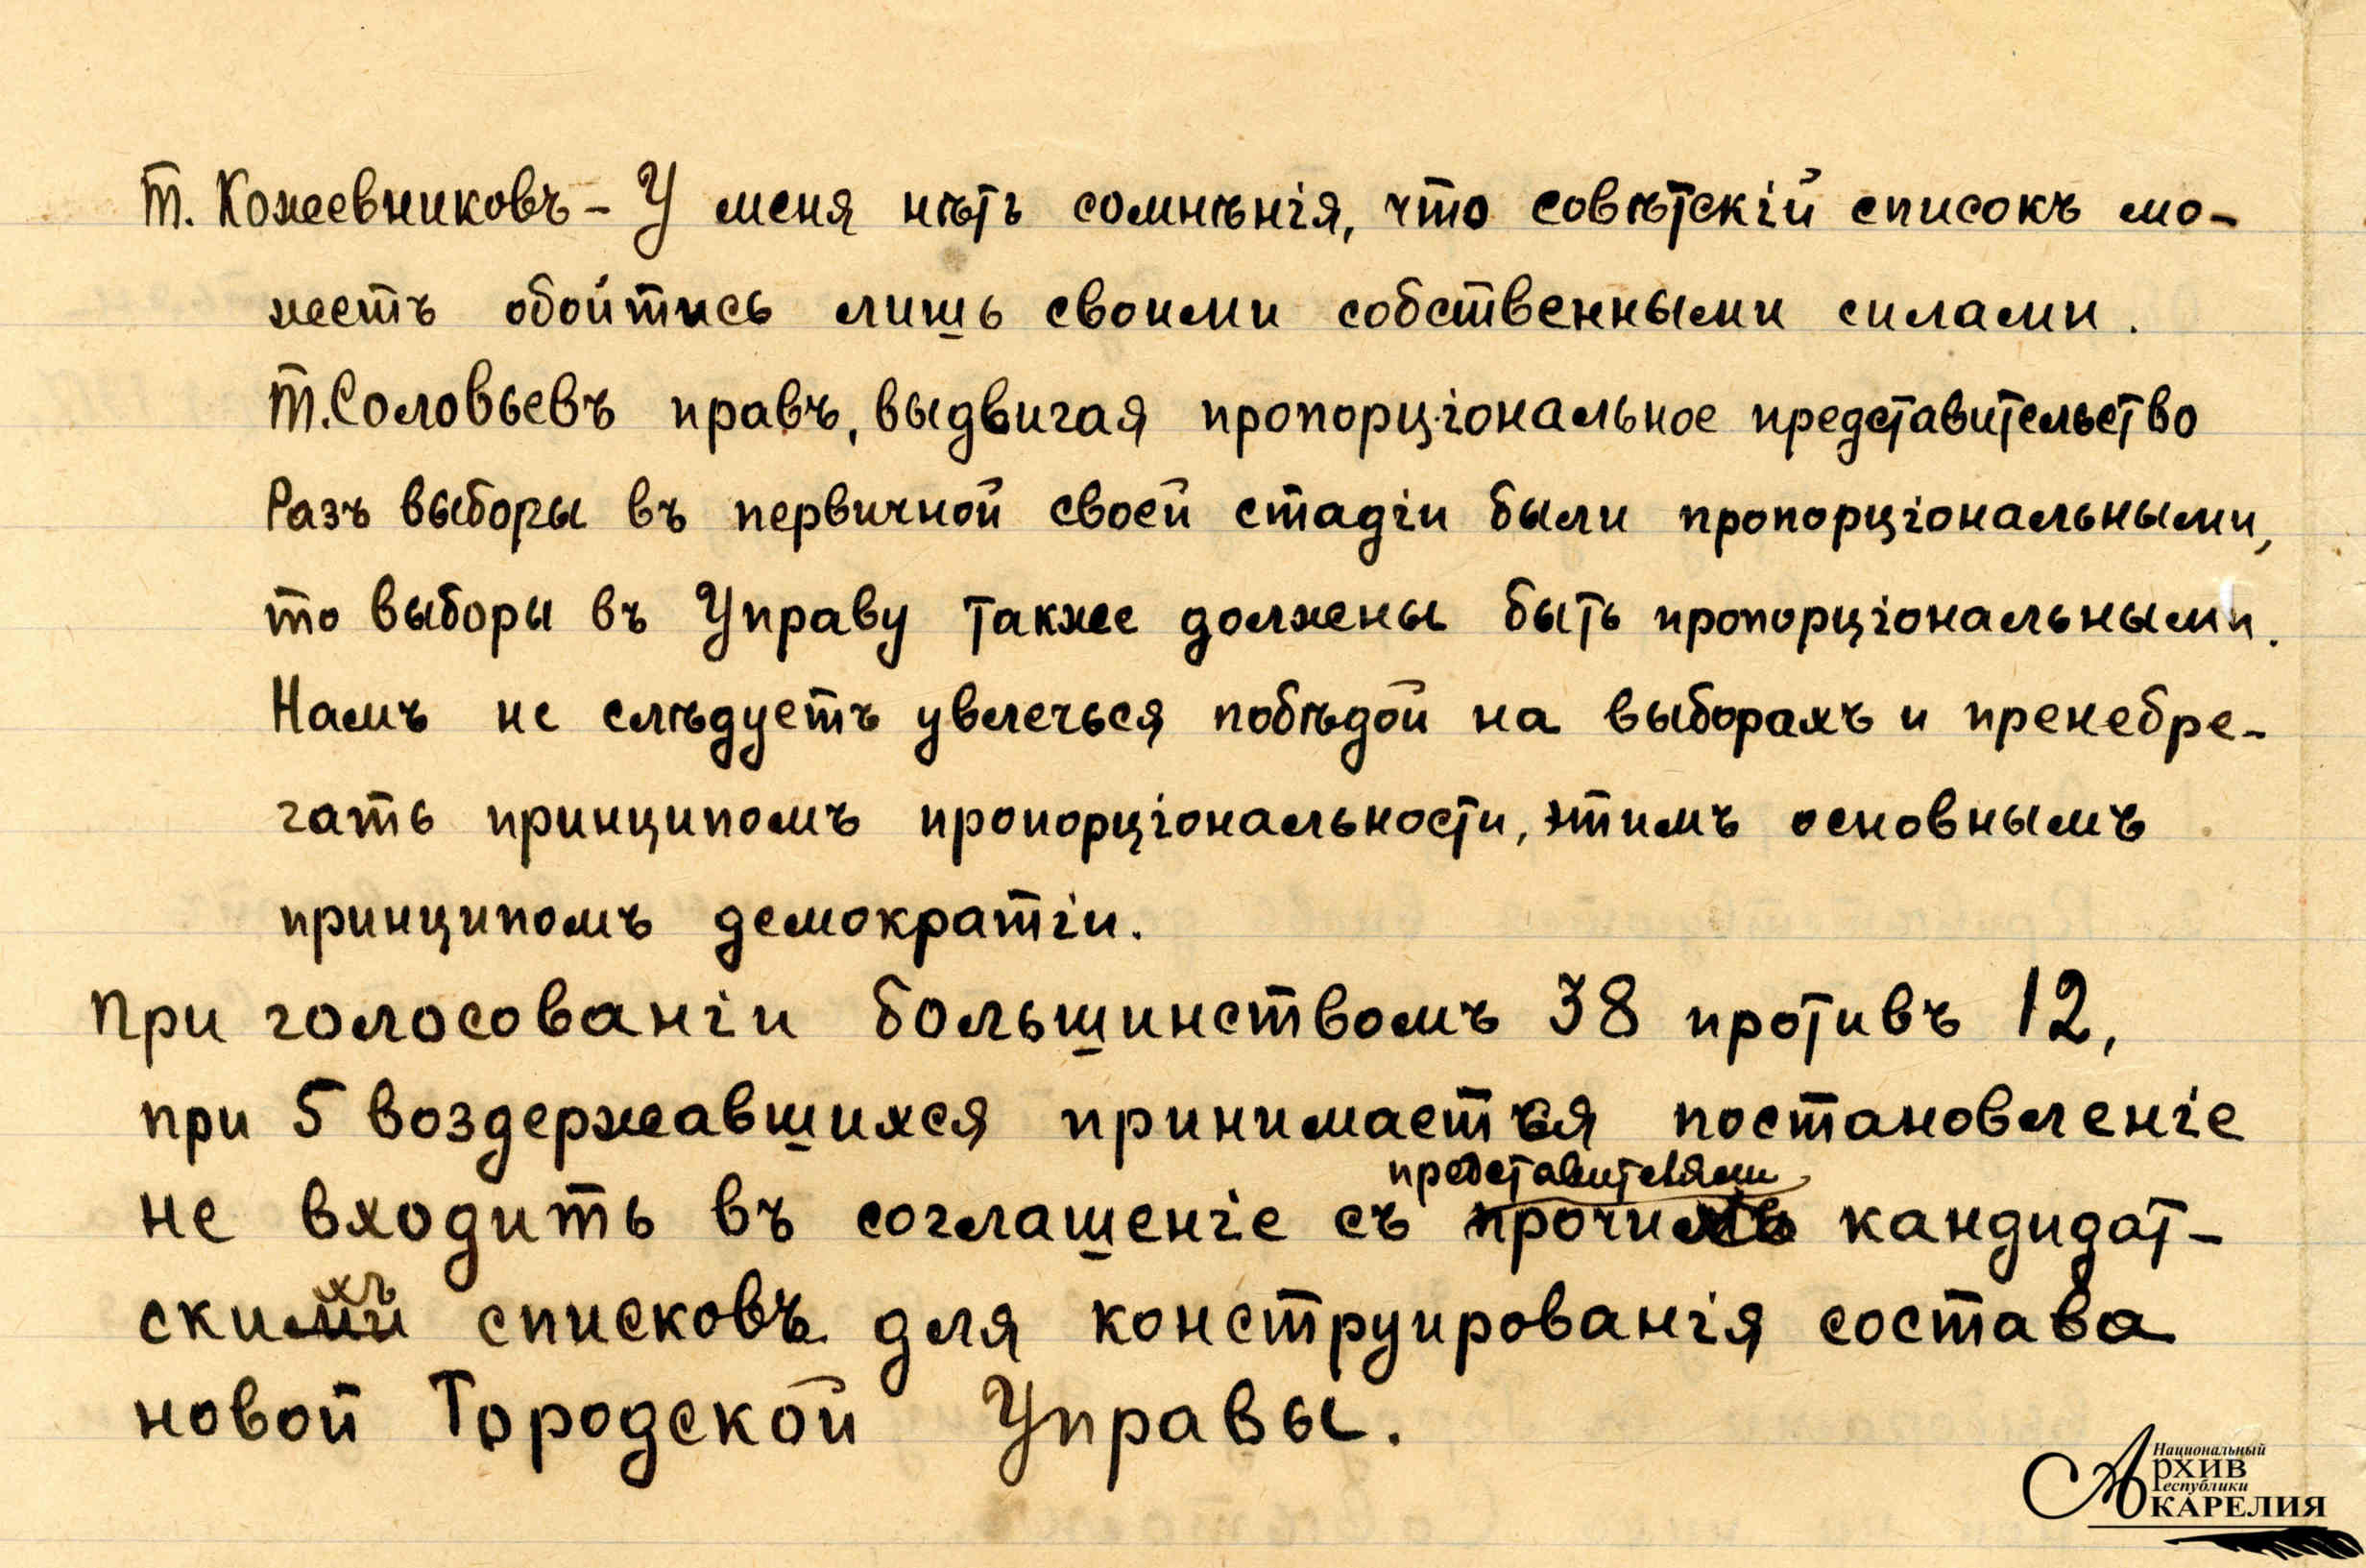 т. Кожевниковъ – У меня нѣтъ сомнѣнія, что совѣтскій списокъ мо-
жетъ обойтись лишь своими собственными силами.
т. Соловьевъ правъ, выдвигая пропорціональное представительство
Разъ выборы въ первичной своей стадіи были пропорціональными,
то выборы въ Управу также должены быть пропорціональными.
Намъ не слѣдуетъ увлечься побѣдой на выборахъ и пренебре-
гать принципомъ пропорціональности, этимъ основнымъ
принципомъ демократіи.
При голосованіи большинствомъ 38 противъ 12,
при 5 воздержавшихся принимается постановленіе
представителями
не входить въ соглашеніе съ прочихъ кандидат-
хъ
скими списковъ для конструированія состава
новой Городской Управы.
Национальный
Архив
Республики
Карелия